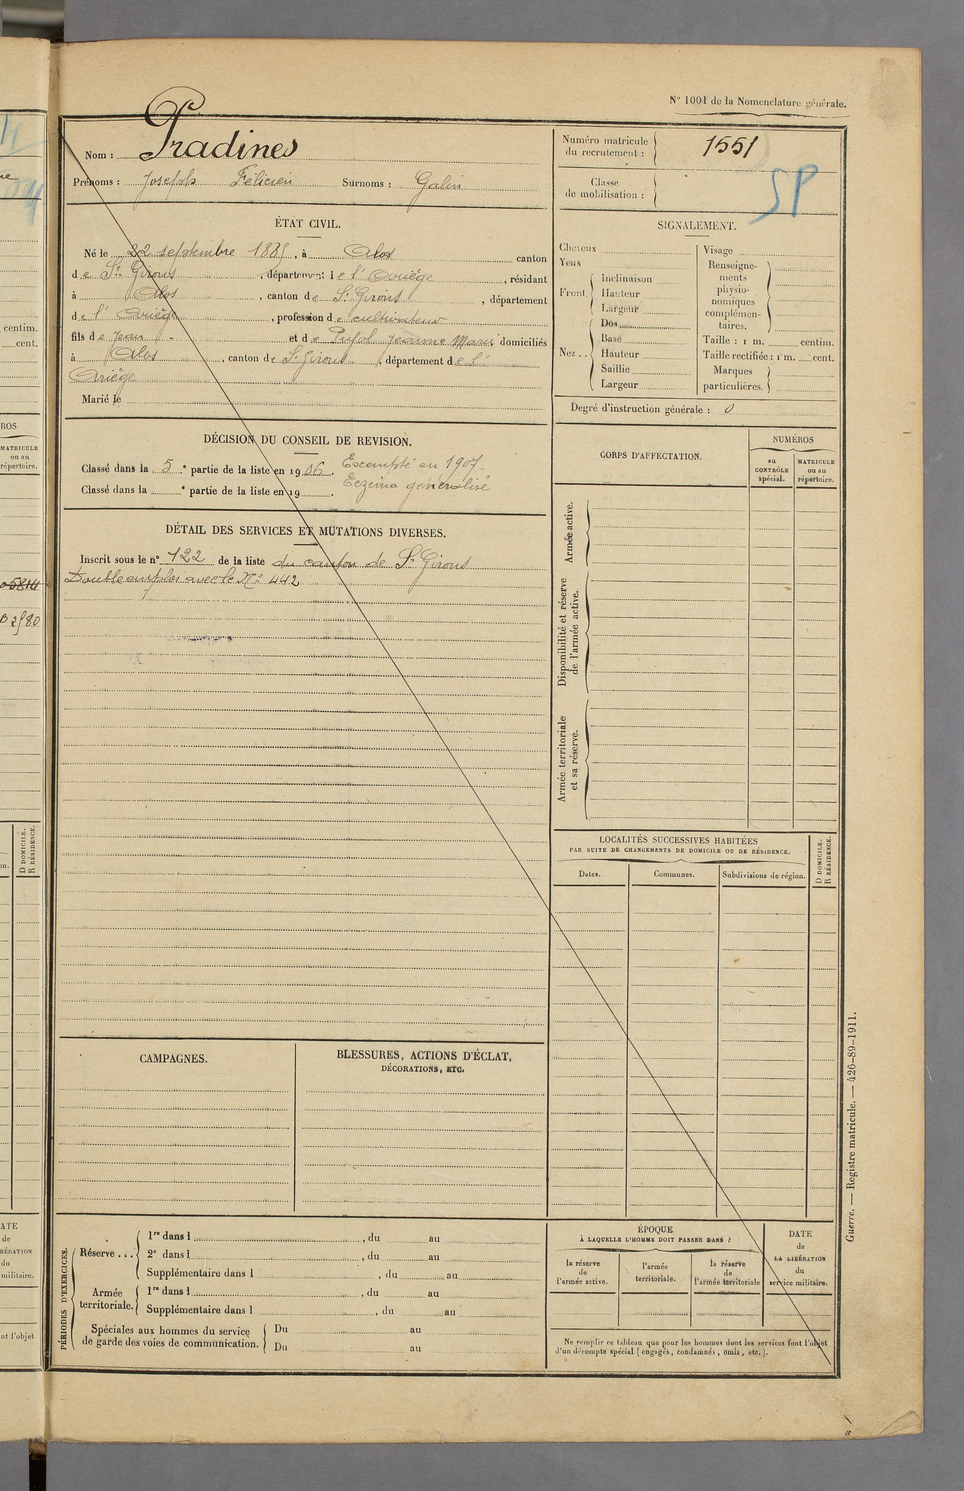 N° 1001 de la Nomenclature générale.
Nom : Pradines
Prénoms : Joseph Félicien Surnoms : Galin
Numéro matricule du recrutement : 1551
Classe de mobilisation :
SP
ÉTAT CIVIL.
Né le 22 septembre 1885, à Alos canton
de St Girons, département de l'Ariège, résidant
à Alos, canton de St Girons, département
de l'Ariège, profession de cultivateur
fils de Jean et de Pujol Jeanne Marie domiciliés
à Alos, canton de St Girons, département de l'
Ariège
Marié le
SIGNALEMENT.
Cheveux
Yeux
Front
Inclinaison
Hauteur
Largeur
Nez
Dos
Base
Hauteur
Saillie
Largeur
Visage
Renseignements physionomiques complémentaires.
Taille : 1 m. centim.
Taille rectifiée : 1 m. cent.
Marques particulières.
Degré d'instruction générale : 0
DÉCISION DU CONSEIL DE REVISION.
Classé dans la 5e partie de la liste en 1906. Exempté en 1907
Classé dans la e partie de la liste en 19 . Eczéma généralisé
DÉTAIL DES SERVICES ET MUTATIONS DIVERSES.
Inscrit sous le n° 122 de la liste du canton de St Girons
Double emploi avec le N° 442
CORPS D'AFFECTATION.
NUMÉROS
au CONTRÔLE spécial.
MATRICULE ou au répertoire.
Armée active.
Disponibilité et réserve de l'armée active.
Armée territoriale et sa réserve.
LOCALITÉS SUCCESSIVES HABITÉES
PAR SUITE DE CHANGEMENTS DE DOMICILE OU DE RÉSIDENCE.
Dates.
Communes.
Subdivisions de région.
D DOMICILE.
R RÉSIDENCE.
CAMPAGNES.
BLESSURES, ACTIONS D'ÉCLAT,
DÉCORATIONS, ETC.
PÉRIODES D'EXERCICES.
Réserve ...
1re dans l , du au
2e dans l , du au
Supplémentaire dans l , du au
Armée territoriale.
1re dans l , du au
Supplémentaire dans l , du au
Spéciales aux hommes du service de garde des voies de communication.
Du au
Du au
ÉPOQUE
À LAQUELLE L'HOMME DOIT PASSER DANS :
la réserve de l'armée active.
l'armée territoriale.
la réserve de l'armée territoriale
DATE de LA LIBÉRATION du service militaire.
Ne remplir ce tableau que pour les hommes dont les services font l'objet
d'un décompte spécial (engagés, condamnés, omis, etc.).
Guerre. — Registre matricule. — 426-89-1911.